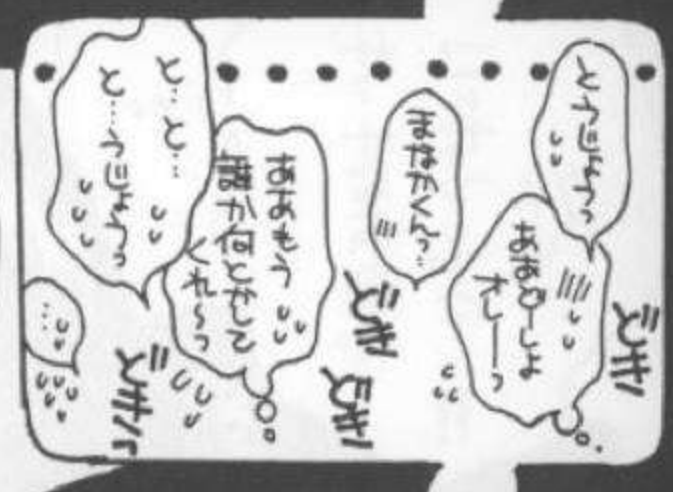 とうじょうっ
ああどーしよ
オレーーっ
どきっ
まなかくんっ…
どき
どきっ
ああもう
誰か何とかして
くれ〜っ
と…と…
と…うじょうっ
どきっ
…